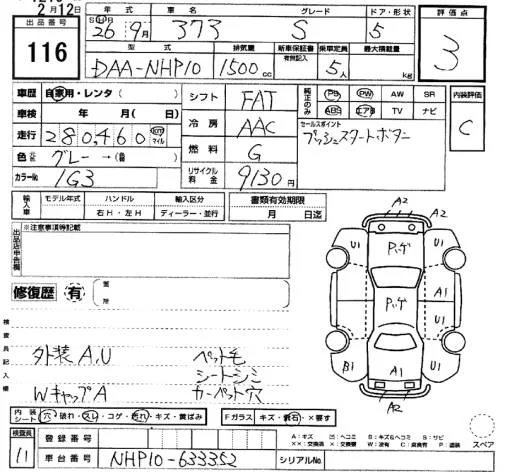 2月12日
出品番号
116
年式 車名 グレード ドア・形状
S H R 26年9月 373 S 5
型式 排気量 新車保証書 乗車定員 最大積載量
有無記入
DAA-NHP10 1500cc 5人 kg
評価点
3
内装評価
C
車歴 自家用・レンタ( )
車検 年 月( 日)
走行 280,460 km マイル
色 元色 グレー→( )
カラーNo 1G3
シフト FAT
冷房 AAC
燃料 G
リサイクル料金 9130円
純正のみ PS PW AW SR
ABS エアB TV ナビ
セールスポイント
プッシュスタートボタン
輸入車 モデル年式 ハンドル 輸入区分
右H・左H ディーラー・並行
書類有効期限
月 日迄
出品店申告欄
※注意事項等記載
修復歴 有
箇所
検査員記入欄
外装A,U ペット毛
シートシミ
WキャップA カーペット穴
A2
A2
U1 U1
A1
U1
B1 U1
A1
A2
内装シート 穴・破れ・スレ・コゲ・汚れ・キズ・黄ばみ
Fガラス キズ・飛石・×要す
検査員 11
登録番号
車台番号 NHP10-633352 シリアルNo.
A:キズ U:ヘコミ B:キズ&ヘコミ S:サビ
××:交換済 ×:交換要 W:波有 C:腐食有 P:塗装
スペア